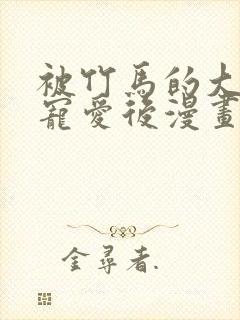 被竹馬的大
寵愛後漫畫
金尋者.